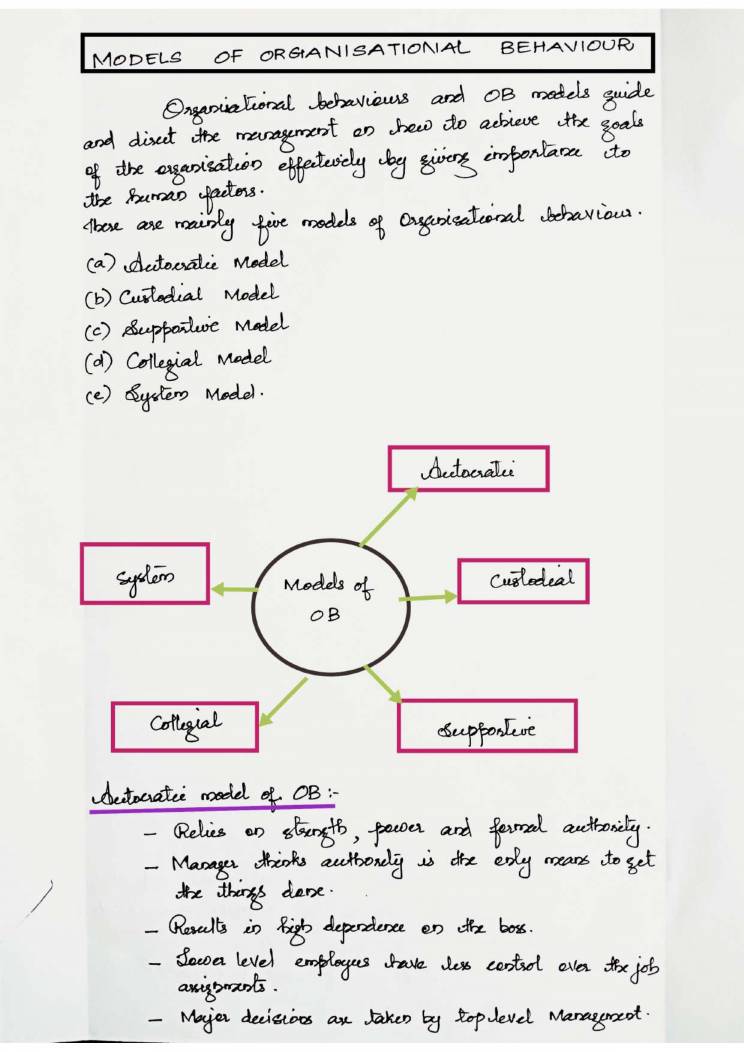 MODELS OF ORGANISATIONAL BEHAVIOUR
Organisational behaviours and OB models guide
and direct the management on how to achieve the goals
of the organisation effectively by giving importance to
the human factors.
There are mainly five models of Organisational behaviour.
(a) Autocratic Model
(b) Custodial Model
(c) Supportive Model
(d) Collegial Model
(e) System Model.
Autocratic
System
Models of
OB
Custodial
Collegial
Supportive
Autocratic model of OB :-
- Relies on strength, power and formal authority.
- Manager thinks authority is the only means to get
the things done.
- Results in high dependence on the boss.
- Lower level employees have less control over the job
assignments.
- Major decisions are taken by top level Management.